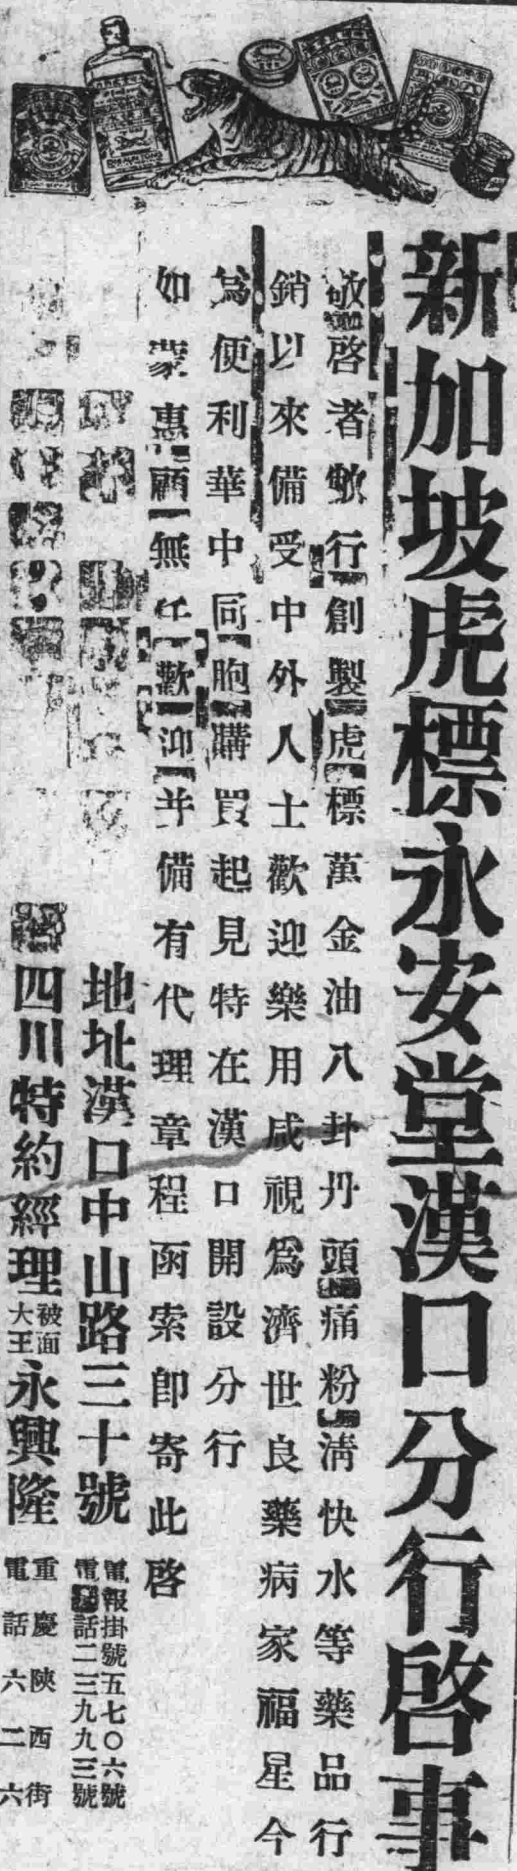 新加坡虎標永安堂漢口分行啓事
敬啓者敝行創製虎標萬金油八卦丹頭痛粉清快水等藥品行
銷以來備受中外人士歡迎樂用咸視爲濟世良藥病家福星今
爲便利華中同胞購買起見特在漢口開設分行
如蒙惠顧無任歡迎并備有代理章程函索卽寄此啓
地址漢口中山路三十號
電報掛號五七〇六號
電話二三九九三號
四川特約經理
被面大王
永興隆
重慶陝西街
電話六二六